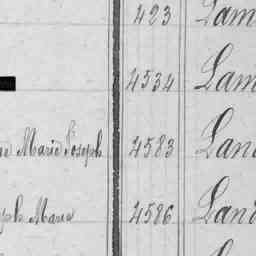 423 Lam
4534 Lam
ne Marie Joseph 4583 Lan
seph Marie 4586 Lan